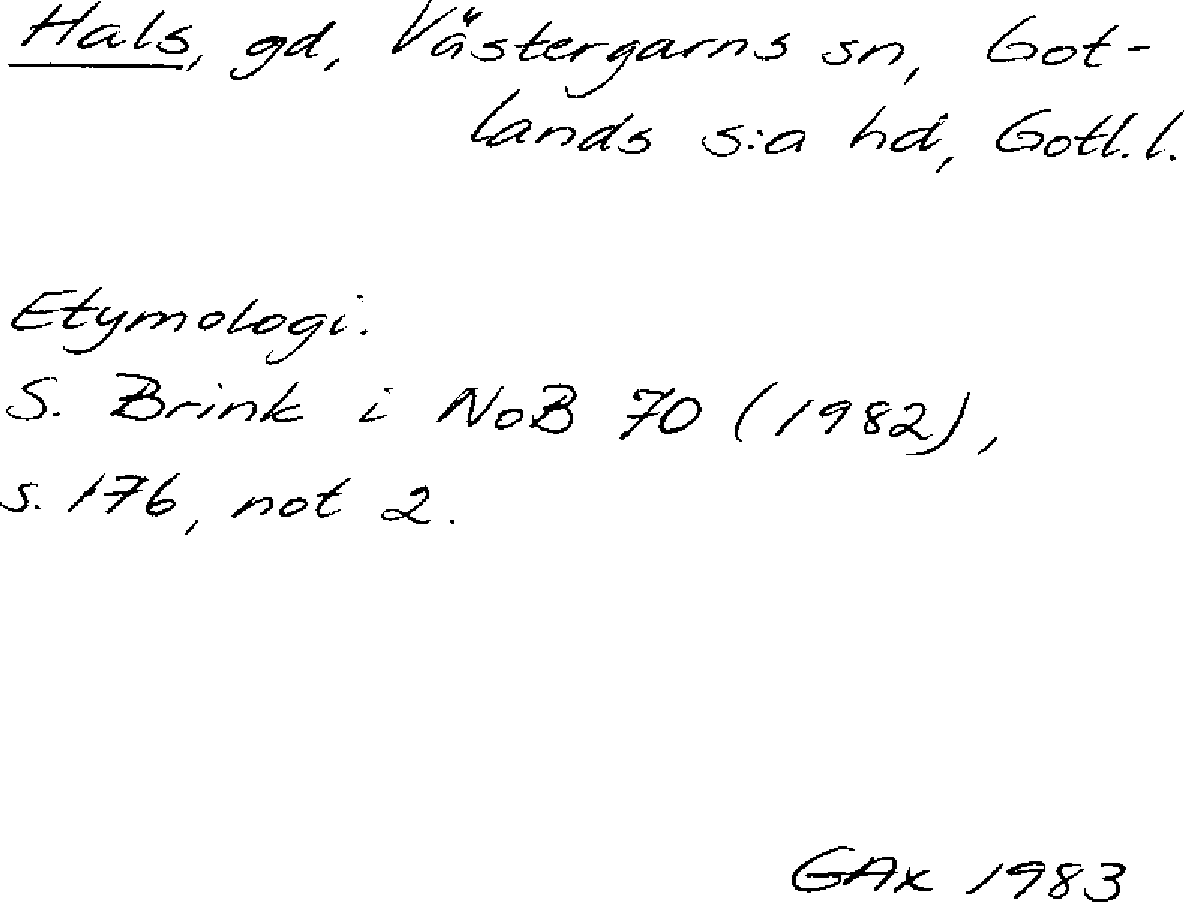 Hals, gd, Västergarns sn, Got-
lands s:a hd, Gotl. l.
Etymologi.
S. Brink i NoB 70 (1982),
s. 176, not 2.
GAx 1983